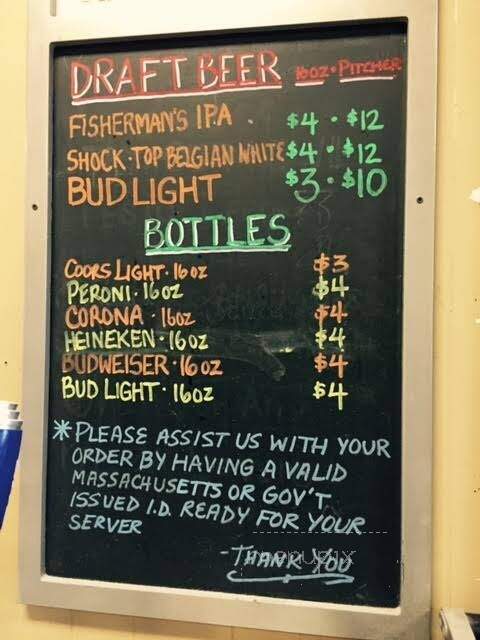 DRAFT BEER 16OZ • PITCHER
FISHERMAN'S IPA . $4 • $12
SHOCK-TOP BELGIAN WHITE $4 • $12
BUD LIGHT $3 • $10
BOTTLES
COORS LIGHT • 16OZ $3
PERONI • 16OZ $4
CORONA • 16OZ $4
HEINEKEN • 16OZ $4
BUDWEISER • 16OZ $4
BUD LIGHT • 16OZ $4
*PLEASE ASSIST US WITH YOUR
ORDER BY HAVING A VALID
MASSACHUSETTS OR GOV'T
ISSUED I.D. READY FOR YOUR
SERVER
-THANK YOU